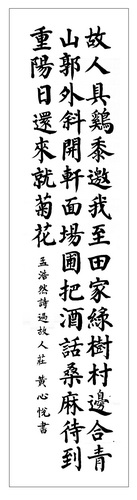 故人具鷄黍邀我至田家綠樹村邊合青
山郭外斜開軒面場圃把酒話桑麻待到
重陽日還來就菊花
孟浩然詩過故人莊 黄心悅書